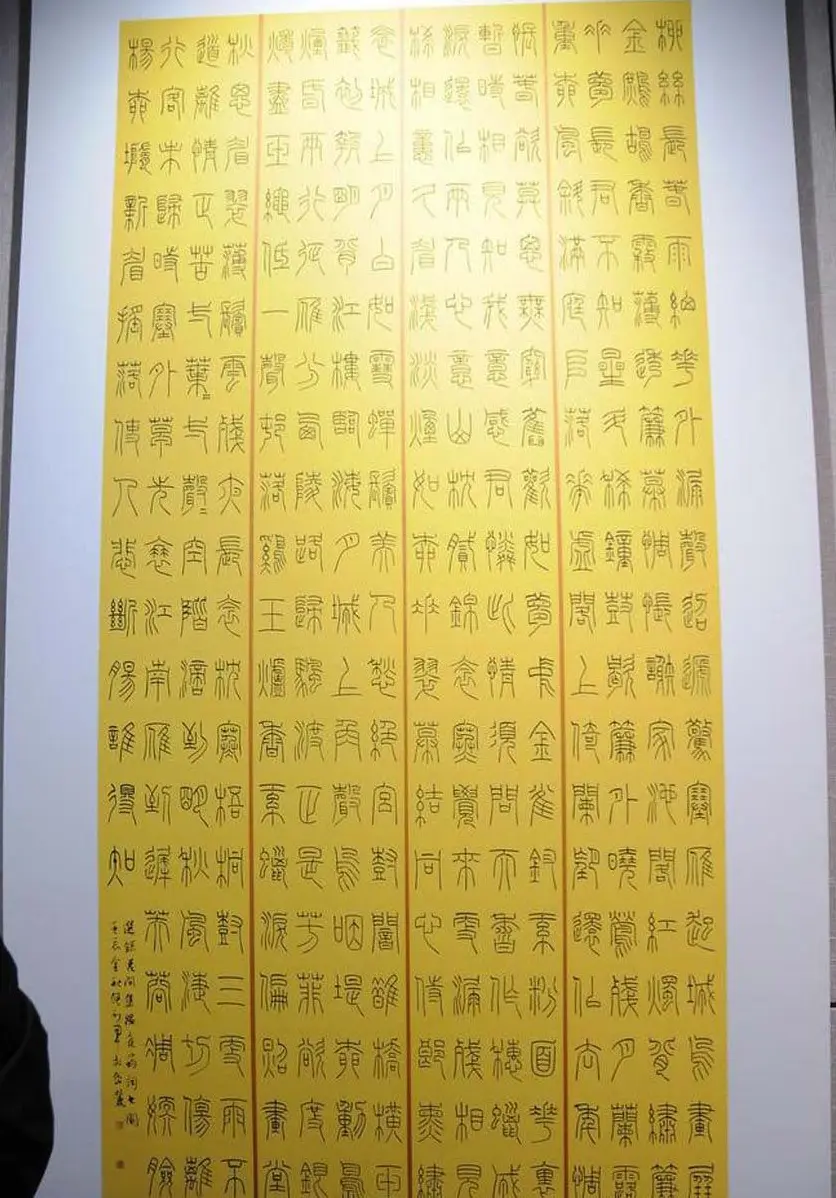 柳絲長春雨細花外漏聲迢遞驚塞雁起城烏畫屏
金鷓鴣香霧薄透簾幕惆悵謝家池閣紅燭背繡簾
垂夢長君不知星斗稀鐘鼓歇簾外曉鶯殘月蘭露
重柳風斜滿庭堆落花虛閣上倚闌望還似去年惆
悵春欲莫思無窮舊歡如夢中金雀釵紅粉面花裏
暫時相見知我意感君憐此情須問天香作穗蠟成
淚還似兩人心意山枕膩錦衾寒覺來更漏殘相見
稀相憶久眉淺淡煙如柳垂翠幕結同心待郎熏繡
衾城上月白如雪蟬鬢美人愁絕宮樹暗鵲橋橫玉
籤初報明背江樓臨海月城上角聲嗚咽堤柳動島
煙昏兩行征雁分西陵路歸帆渡正是芳菲欲度銀
燭盡玉繩低一聲村落雞玉爐香紅蠟淚偏照畫堂
秋思眉翠薄鬢雲殘夜長衾枕寒梧桐樹三更雨不
道離情正苦一葉葉一聲聲空階滴到明秋風淒切傷離
行客未歸時塞外草先衰江南雁到遲芙蓉凋嫩臉
楊柳墮新眉搖落使人悲斷腸誰得知
選錄花間集溫庭筠詞七闋